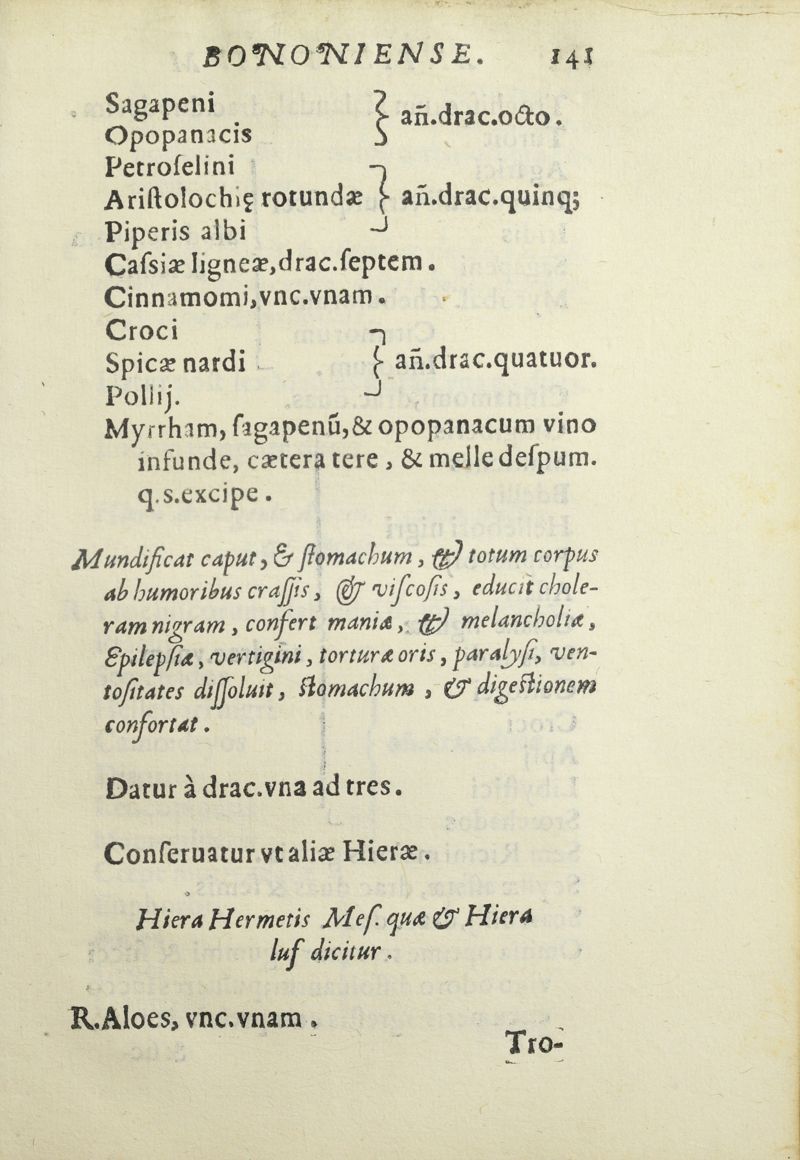 BONONIENSE. 141
Sagapeni
Opopanacis } añ.drac.octo.
Petroſelini
Ariſtolochię rotundæ } añ.drac.quinq;
Piperis albi
Caſsiæ ligneæ,drac.ſeptem.
Cinnamomi,vnc.vnam.
Croci
Spicæ nardi } añ.drac.quatuor.
Pollij.
Myrrham, ſagapenũ,& opopanacum vino
infunde, cætera tere, & melle deſpum.
q.s.excipe.
Mundificat caput, & ſtomachum, & totum corpus
ab humoribus craſſis, & viſcoſis, educit chole-
ram nigram, confert maniæ, & melancholiæ,
Epilepſiæ, vertigini, torturæ oris, paralyſi, ven-
toſitates diſſoluit, ſtomachum, & digeſtionem
confortat.
Datur à drac.vna ad tres.
Conſeruatur vt aliæ Hieræ.
Hiera Hermetis Meſ. quæ & Hiera
luſ dicitur.
R.Aloes, vnc.vnam.
Tro-